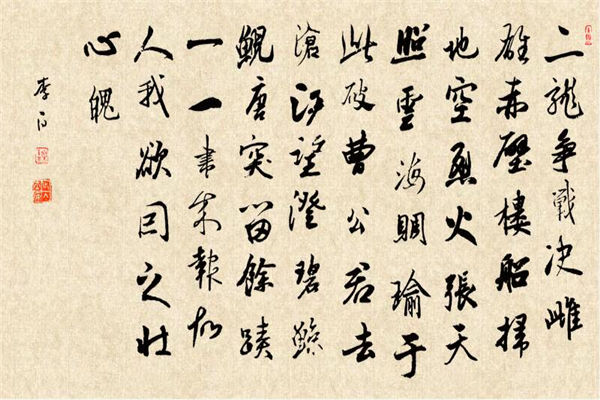 二龍争戰決雌
雄赤壁樓船掃
地空烈火張天
照雲海賙瑜于
此破曹公君去
滄江望澄碧鯨
鯢唐突留餘蹟
一一書來報故
人我欲因之壯
心魄
李白